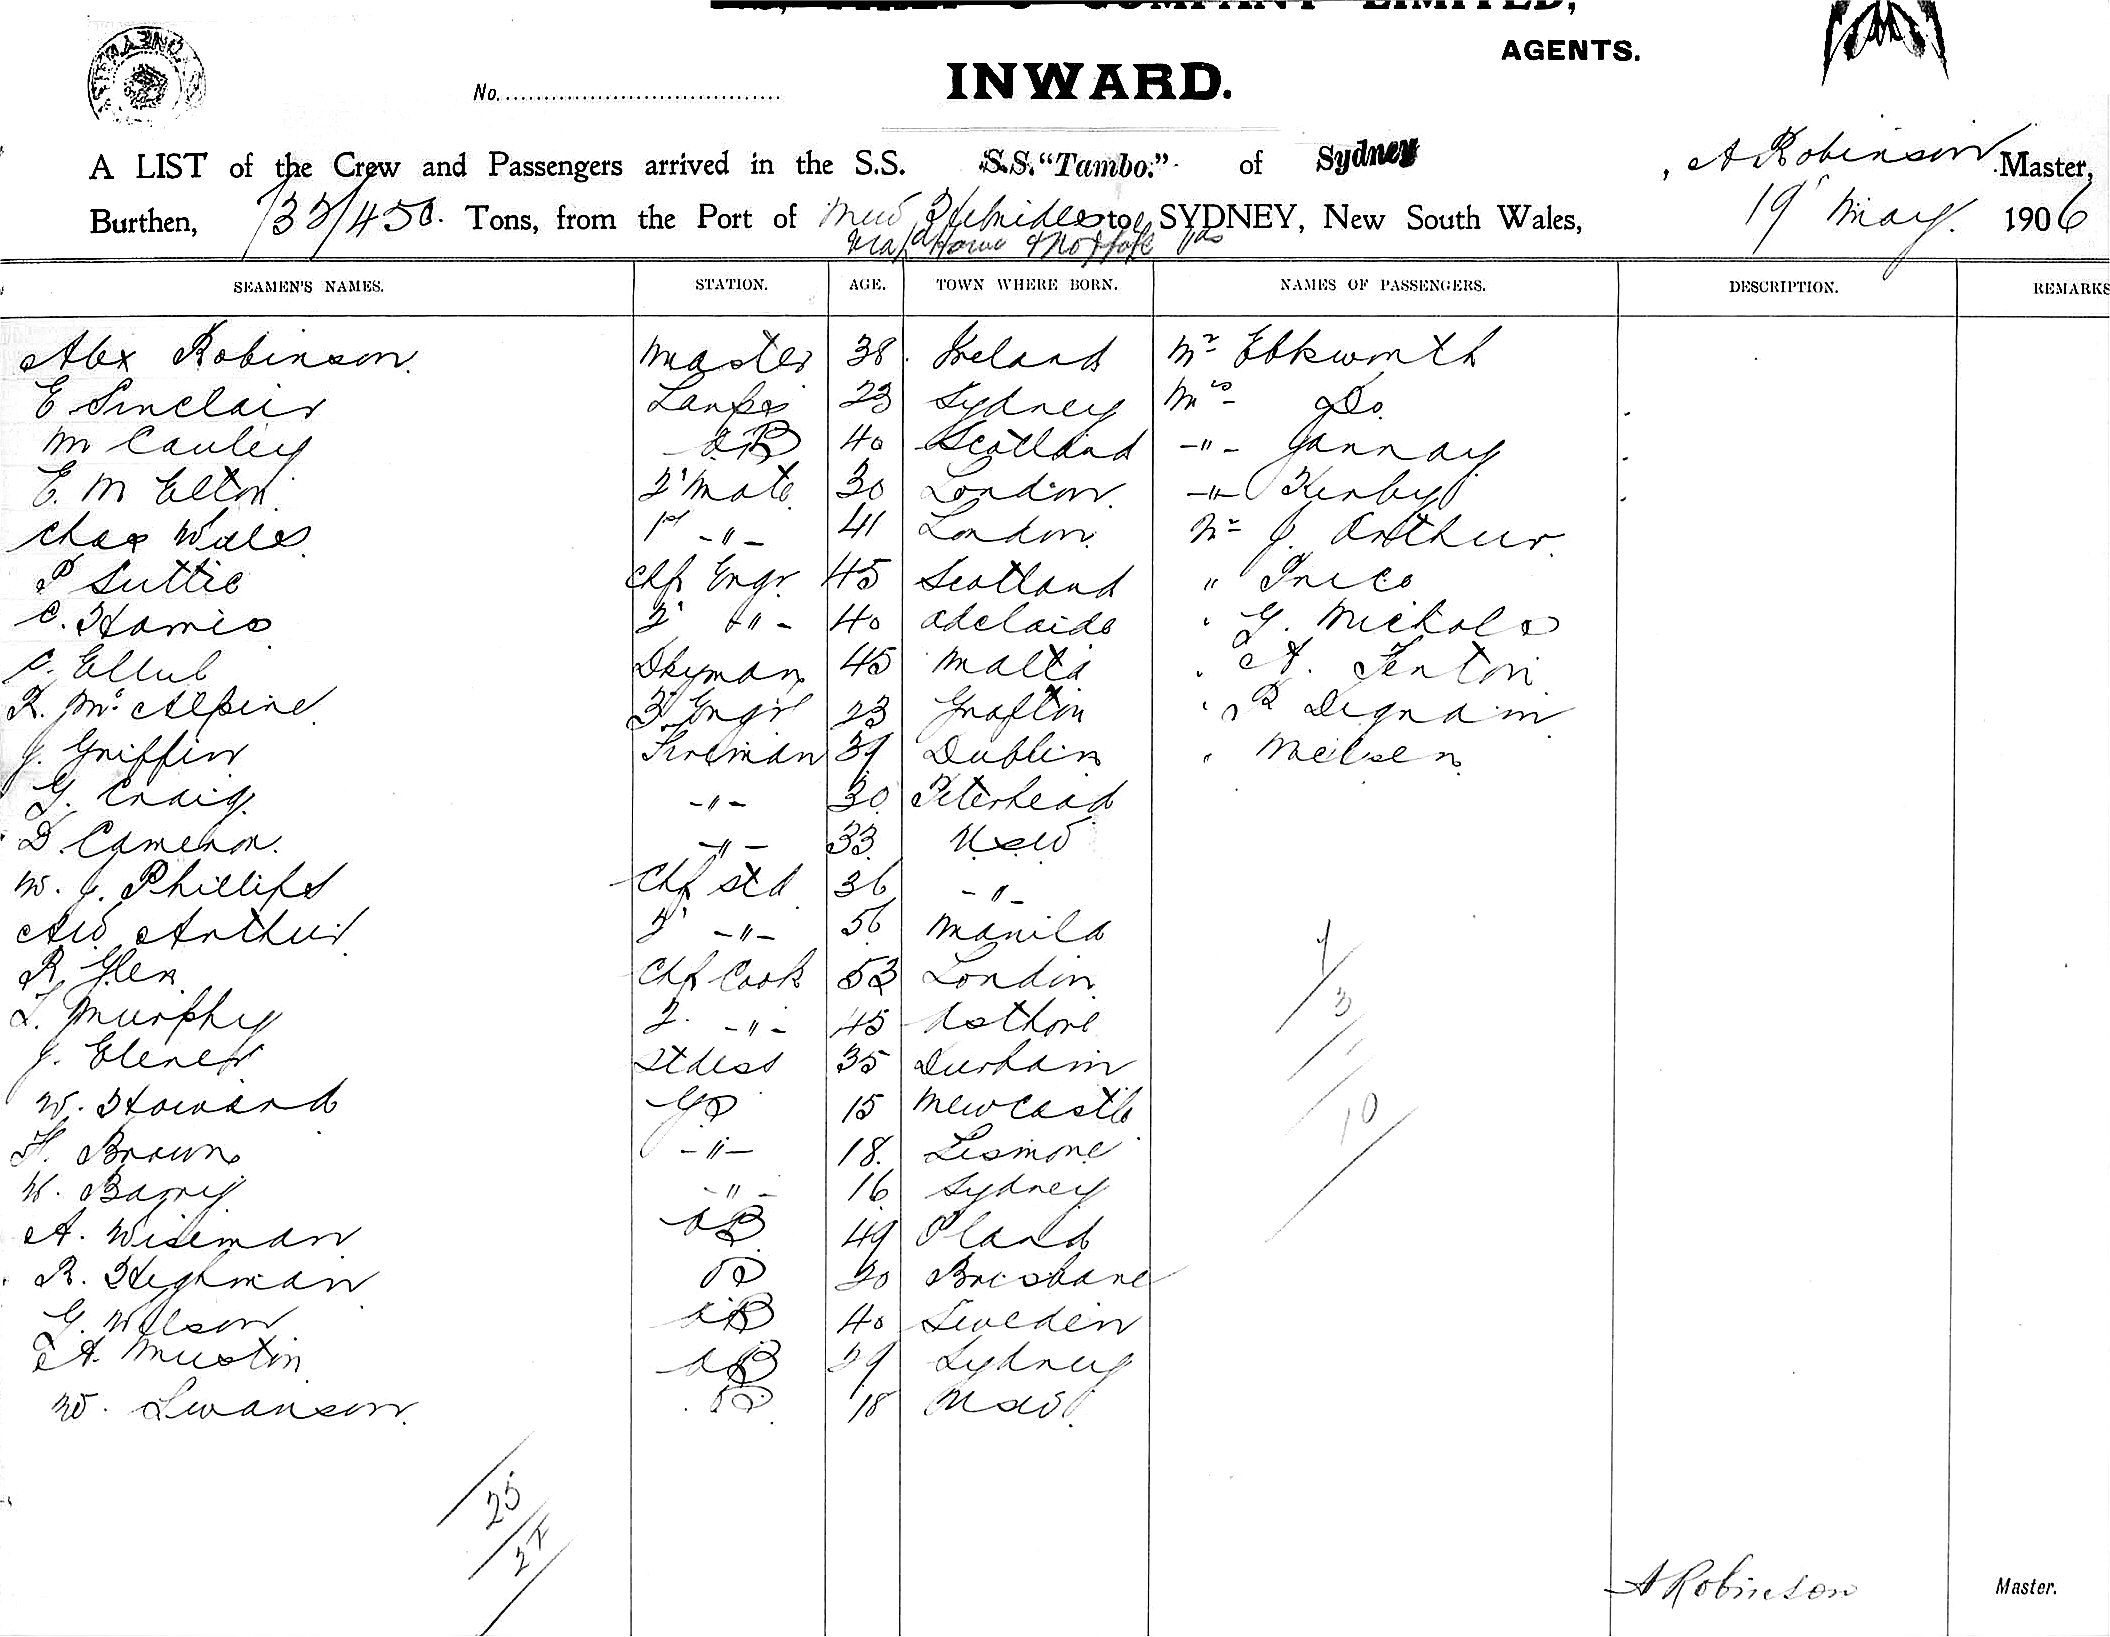 COMPANY LIMITED,
AGENTS.
SYDNEY
No.
INWARD.
A LIST of the Crew and Passengers arrived in the S.S. S.S. "Tambo." of Sydney, A Robinson Master,
Burthen, 732/450. Tons, from the Port of New Hebrides to SYDNEY, New South Wales, 19 May. 1906
via Howe & Norfolk Ids
SEAMEN'S NAMES. STATION. AGE. TOWN WHERE BORN. NAMES OF PASSENGERS. DESCRIPTION. REMARKS
Alex Robinson Master 38 Ireland Mr Ebkworth
E Sinclair Lamps 23 Sydney Mrs Do.
M Cauley AB 40 Scotland -"- Jannay
E. M Elton 2' Mate 30 London -"- Kirby
Chas Wales 1st -"- 41 London Mr J. Arthur
P Suttie Chf Engr. 45 Scotland " Price
C. Harris 2' -"- 40 Adelaide " G. Nichols
C. Ellul Dkyman 45 Malta " A. Fenton
R. McAlpine 3' Engr 23 Grafton " P Dignam
J. Griffin Fireman 39 Dublin " Nielsen
G. Craig -"- 30 Peterhead
D. Cameron. -"- 33 NSW
W. J. Phillips Chf std 36 -"-
AW Arthur 2' -"- 56 Manila
R. Glen Chf Cook 53 London
L. Murphy 2. -"- 45
J. Stdess 35 Durham
W. Howard GS 15 Newcastle
H. Brown -"- 18. Lismore
W. -"- 16 Sydney
A. Wiseman AB 49 Oland
R. Highman OS 20 Brisbane
G. Wilson AB 40 Sweden
A. Mustin AB 29 Sydney
W. Swanson OS 18 NSW
7
3
10
25
27
A Robinson Master.